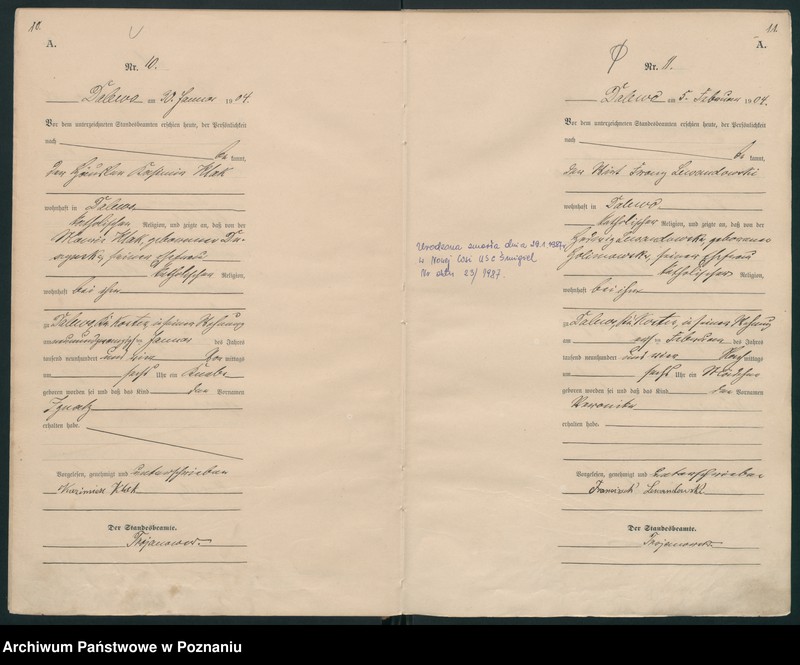 10.
A.
Nr. 10.
Dalewo am 20. Januar 1904.
Vor dem unterzeichneten Standesbeamten erschien heute, der Persönlichkeit
nach
be kannt,
der Häusler Kasimir Klak
wohnhaft in Dalewo
katholischer Religion, und zeigte an, daß von der
Klak, geborenen
seiner Ehefrau
katholischer Religion,
wohnhaft bei ihm
zu Dalewo, Kr. Kosten, in seiner Wohnung
am Januar des Jahres
tausend neunhundert und vier Vor mittags
um Uhr ein Knabe
geboren worden sei und daß das Kind den Vornamen
Ignatz
erhalten habe.
Vorgelesen, genehmigt und unterschrieben
Kazimierz Klak
Der Standesbeamte.
Trojanowski
11.
A.
Nr. 11.
Dalewo am 5. Februar 1904.
Vor dem unterzeichneten Standesbeamten erschien heute, der Persönlichkeit
nach
be kannt,
der Wirt Franz Lewandowski
wohnhaft in Dalewo
katholischer Religion, und zeigte an, daß von der
Hedwig Lewandowska, geborenen
seiner Ehefrau
katholischer Religion,
wohnhaft bei ihm
zu Dalewo, Kr. Kosten, in seiner Wohnung
am Februar des Jahres
tausend neunhundert und vier Nach mittags
um Uhr ein Mädchen
geboren worden sei und daß das Kind den Vornamen
Weronika
erhalten habe.
Vorgelesen, genehmigt und unterschrieben
Franciszek Lewandowski
Der Standesbeamte.
Trojanowski
Urodzona zmarła dnia 1987
w Nowej Wsi USC Śmigiel
Nr aktu 23/1987.
Archiwum Państwowe w Poznaniu